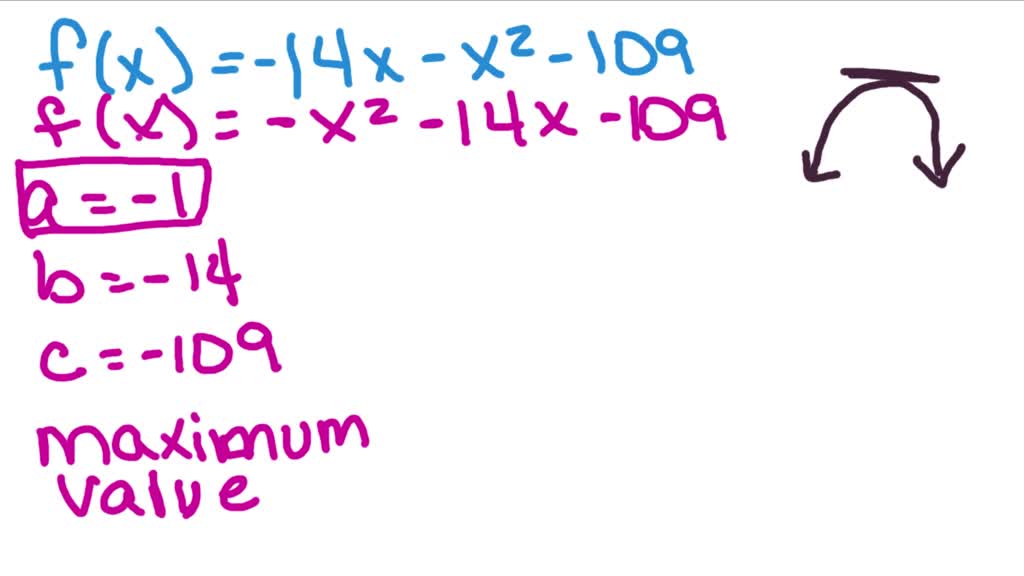 f(x) = -14x - x² - 109
f(x) = -x² - 14x - 109
a = -1
b = -14
c = -109
maximum
value